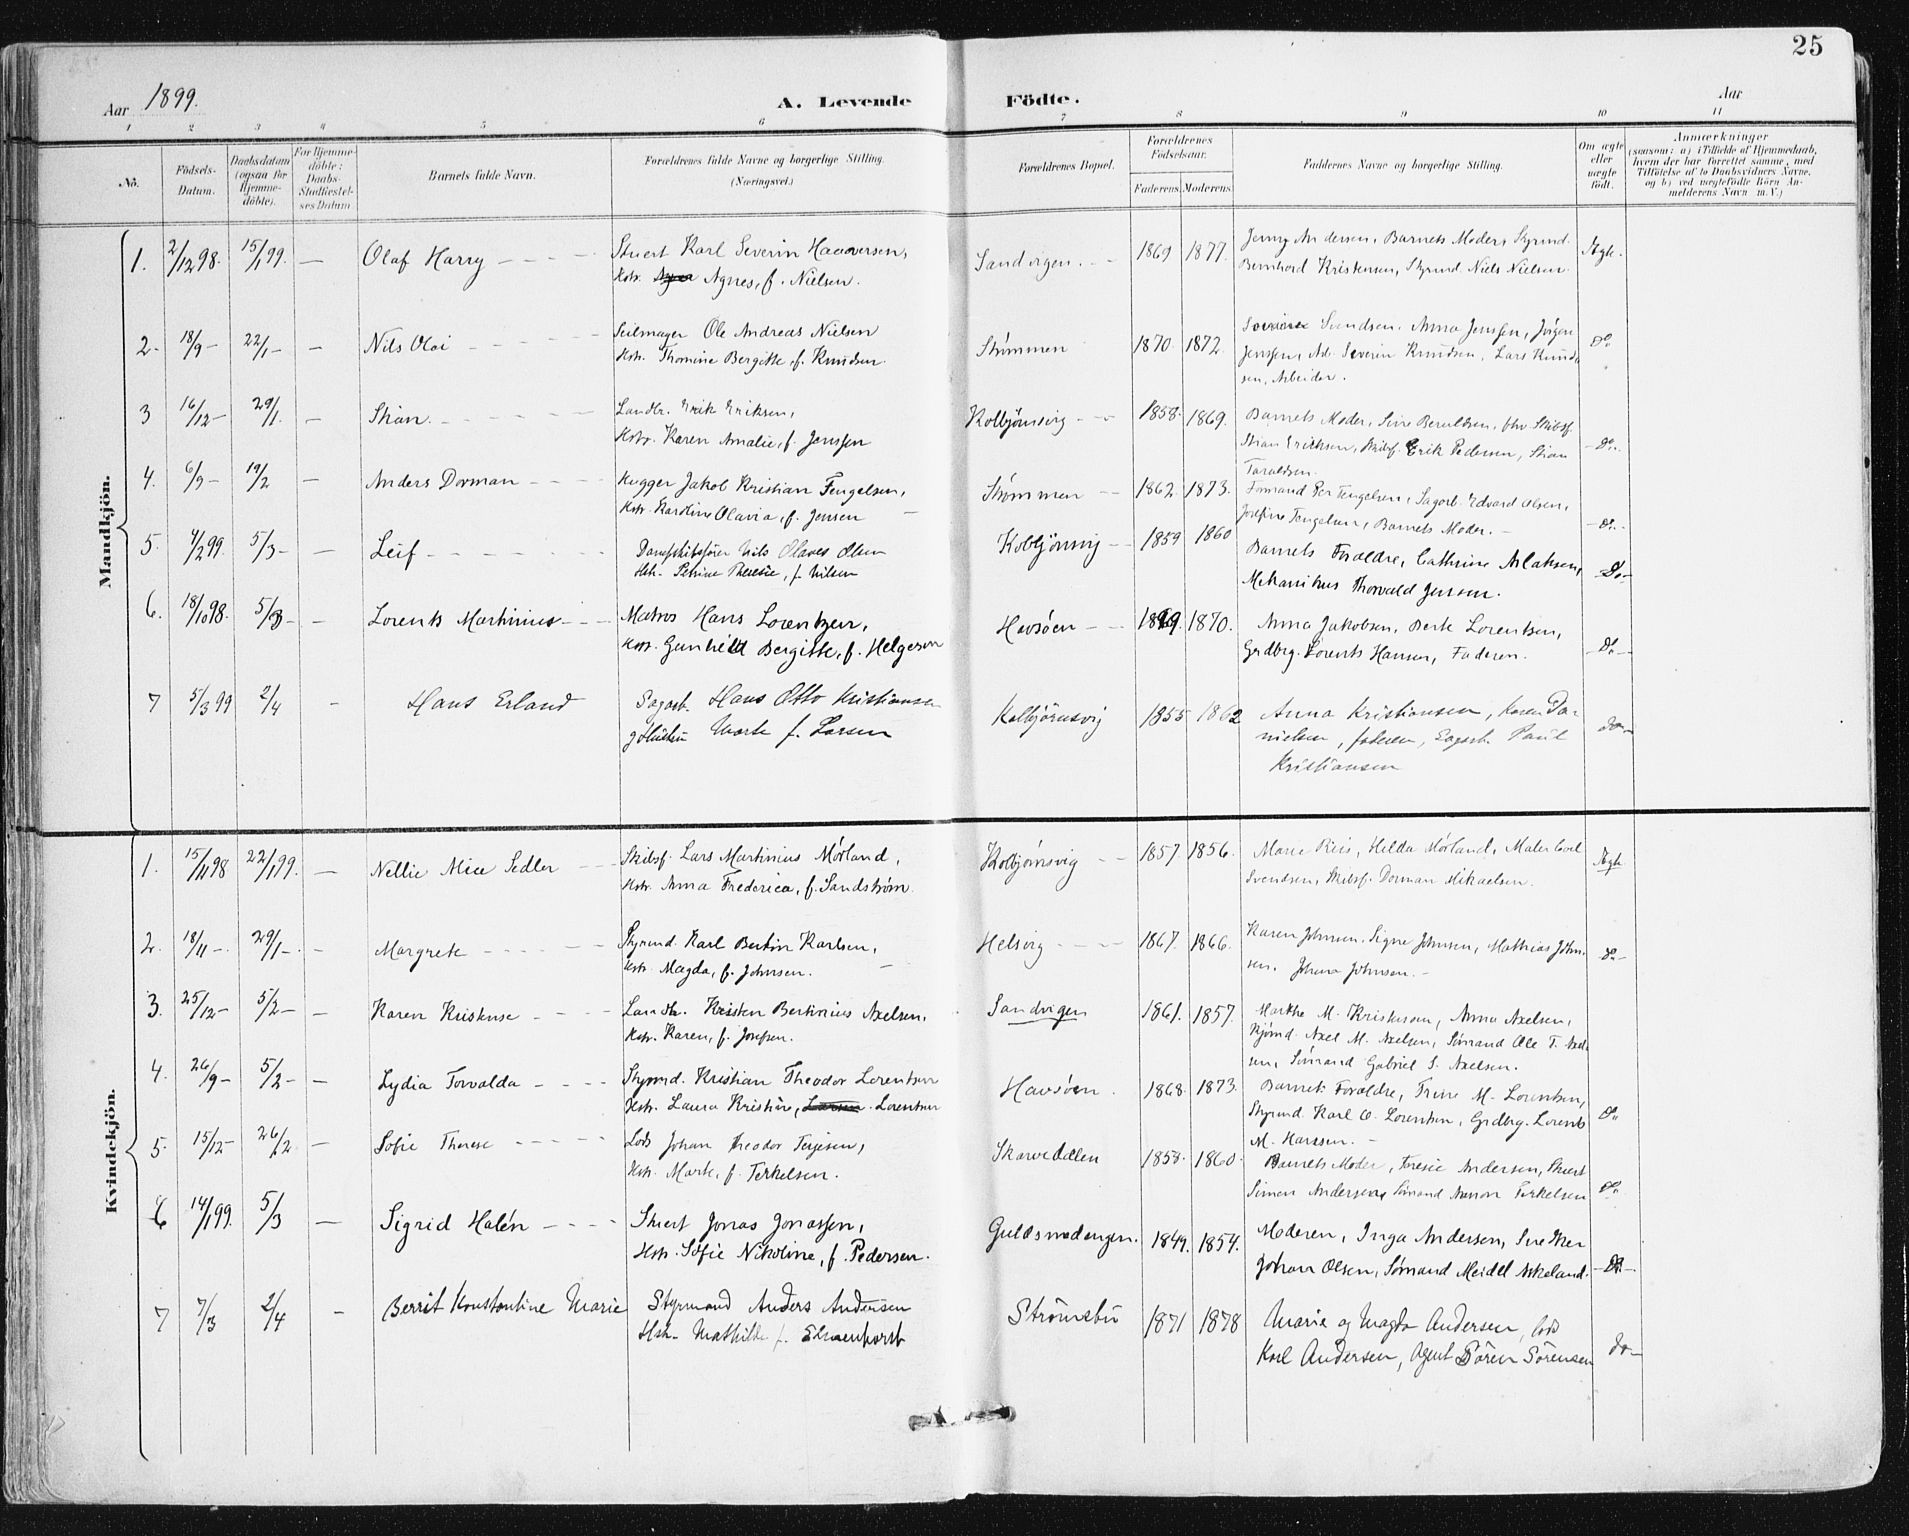 25
Aar 1899.
A. Levende Födte.
Aar
1 2 3 4 5 6 7 8 9 10 11
No.
Födsels-Datum.
Daabsdatum (ogsaa for Hjemme-döbte).
For Hjemme-döbte: Daabs-Stadfæstel-ses Datum
Barnets fulde Navn.
Forældrenes fulde Navne og borgerlige Stilling.
(Næringsvei.)
Forældrenes Bopæl.
Forældrenes Födselsaar.
Faderens. Moderens.
Faddernes Navne og borgerlige Stilling.
Om ægte eller uægte födt.
Anmærkninger
(saasom: a) i Tilfælde af Hjemmedaab, hvem der har forrettet samme, med Tilföielse af to Daabsvidners Navne, og b) ved uægtefödte Börn An-melderens Navn m. V.)
Mandkjön.
1. 2/12 98. 15/1 99. — Olaf Harry - - - - Stuert Karl Severin Haaversen, Sandvigen. - - 1869 1877. Jenny Andersen, Barnets Moder, Styrmd. Ægte.
Hstr. Agnes, f. Nielsen. Bernhard Kristensen, Styrmd. Niels Nielsen.
2. 18/9 - 22/1 - — Nils Olai - - - - Seilmager Ole Andreas Nielsen Strømmen 1870. 1872. Svendsen, Anna Jenssen, Jørgen Do.
Hstr. Thomine Bergitte, f. Knudsen. Jenssen, Ad. Severin Knudsen, Lars Knud-
sen, Arbeider.
3 16/12 - 29/1. — Stian. - - - - Landbr. Erik Eriksen, Kolbjørnsvig - - 1858. 1869. Barnets Moder, Sine Beruldsen, Skibsf.
Hstr. Karen Amalie, f. Jenssen Stian Eriksen, Skibsf. Erik Pedersen, Stian - Do.
Taraldsen.
4. 6/9 - 19/2 — Anders Dorman - - - - Hugger Jakob Kristian Tengelsen, Strømmen - - 1862. 1873. Formand Per Tengelsen, Sagarb. Edvard Olsen,
Hstr. Karoline Olavia, f. Jensen - Josefine Tengelsen, Barnets Moder. - - Do.
5. 4/2 99. 5/3 - — Leif - - - - Dampskibsfører Nils Olaves Olsen Kolbjørnsvig - 1859 1860 Barnets Forældre, Cathrine
Hstr. Petrine Theresie, f. Nilsen Mekanikus Thorvald Jensen. Do.
6. 18/10 98. 5/3 - — Lorents Martinius - - - Matros Hans Lorentzen, Havsøen - - 1869 1870. Anna Jakobsen, Berte Lorentsen,
Hstr. Gunhild Bergitte, f. Helgesen Grdbrg. Lorents Hansen, Faderen. - Do. -
7 5/3 99 2/4 - Hans Erland Sagarb. Hans Otto Kristiansen Kolbjørnsvig 1855 1862 Anna Kristiansen, Karen Da-
g Hustru Marte f. Larsen nielsen, faderen, Sagarb. Paul do -
Kristiansen
Kvindekjön.
1. 15/11 98 22/1 99. — Nellie Alice Sedler - - Skibsf. Lars Martinius Mørland, Kolbjørnsvig - - 1857. 1856. Marie Riis, Hilda Mørland, Maler Carl Ægte
Hstr. Anna Frederica, f. Sandstrøm. Svendsen, Skibsf. Dorman Mikaelsen.
2. 18/11 -. 29/1 -. - Margrete - - - - Styrmd. Karl Bertin Karlsen, Helsvig - - - - 1867. 1866. Karen Johnsen, Signe Johnsen, Mathias John- Do -
Hstr. Magda, f. Johnsen. - sen, Johan Johnsen. -
3. 25/12 - 5/2 - — Karen Kristense - - - - Landbr. Kristen Bertinius Axelsen, Sandvigen 1861. 1857. Marthe M. Kristensen, Anna Axelsen,
Hstr. Karen, f. Josefsen. Axel M. Axelsen, Sømand Ole T. Axel-
sen, Sømand Gabriel S. Axelsen.
4. 26/9 - 5/2 - — Lydia Torvalda - - - - Styrmd. Kristian Theodor Lorentsen Havsøen. 1868. 1873. Barnets Forældre, Trine M. Lorentsen,
Hstr. Laura Kristine, Larsen Lorentsen Styrmd. Karl O. Lorentsen, Grdbrg. Lorents Do.
M. Hanssen. -
5. 15/12 - 26/2 — Sofie Therese - - - - - Lods Johan Theodor Terjesen, Skarveddalen 1858. 1860. Barnets Moder, Andersen, Stuert
Hstr. Marte, f. Terkelsen. Simen Andersen, Sømand Terkelsen Do.
6 14/1 99. 5/3 — Sigrid Halén - - - - Stuert Jonas Jonassen, Guldsmedengen. 1849. 1854. Moderen, Inga Andersen, Snedker
Hstr. Sofie Nikoline, f. Pedersen. Johan Olsen, Sømand Meidel Askeland. - Do. -
7 7/3 2/4 - Berrit Konstantine Marie Styrmand Anders Andersen Strömsbu 1871 1878 Marie og Magda Andersen, lods
Hstr. Mathilde f. Karl Andersen, Agent Sören Sörensen do -